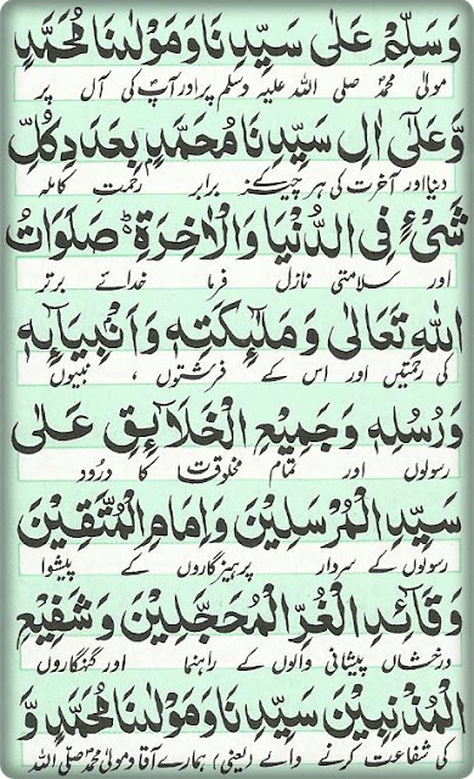 وَسَلِّمْ عَلٰى سَيِّدِنَا وَمَوْلٰىنَا مُحَمَّدٍ
مولیٰ محمدؐ صلی اللہ علیہ وسلم پر اور آپؐ کی آل پر
وَّعَلٰٓى اٰلِ سَيِّدِنَا مُحَمَّدٍۢ بِعَدَدِ كُلِّ
دنیا اور آخرت کی ہر چیز کے برابر رحمت کاملہ
شَىْءٍ فِى الدُّنْيَا وَالْاٰخِرَةِ ؕ صَلَوَاتُ
اور سلامتی نازل فرما خدائے برتر
اللهِ تَعَالٰى وَمَلٰٓئِكَتِهٖ وَاَنْۢبِيَآئِهٖ
کی رحمتیں اور اس کے فرشتوں ، نبیوں
وَرُسُلِهٖ وَجَمِيْعِ الْخَلَآئِقِ عَلٰى
رسولوں اور تمام مخلوقات کا درود
سَيِّدِ الْمُرْسَلِيْنَ وَاِمَامِ الْمُتَّقِيْنَ
رسولوں کے سردار پرہیزگاروں کے پیشوا
وَقَآئِدِ الْغُرِّ الْمُحَجَّلِيْنَ وَشَفِيْعِ
درخشاں پیشانی والوں کے راہنما اور گنہگاروں
الْمُذْنِبِيْنَ سَيِّدِنَا وَمَوْلٰىنَا مُحَمَّدٍ وَّ
کی شفاعت کرنے والے (یعنی) ہمارے آقا و مولیٰ محمدؐ صلی اللہ